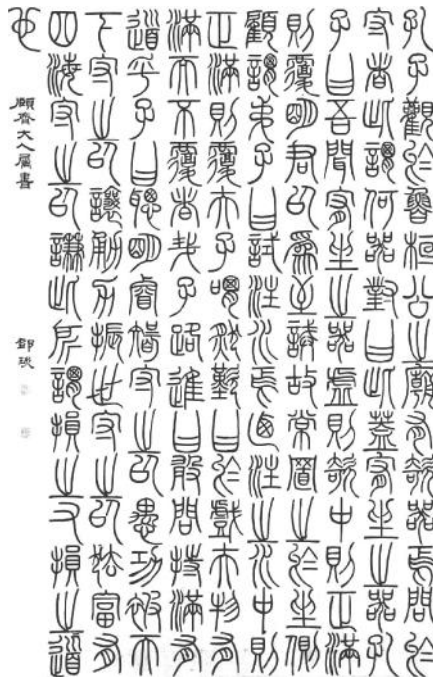 孔子觀於魯桓公之廟有欹器焉問於
守者此謂何器對曰此蓋宥坐之器孔
子曰吾聞宥坐之器虛則欹中則正滿
則覆明君以為至誡故常置之於坐側
顧謂弟子曰試注水焉迺注之水中則
正滿則覆夫子喟然歎曰於戲夫物有
滿而不覆者哉子路進曰敢問持滿有
道乎子曰聰明睿智守之以愚功被天
下守之以讓勇力振世守之以怯富有
四海守之以謙此所謂損之又損之道
也
齋大人屬書
鄧琰